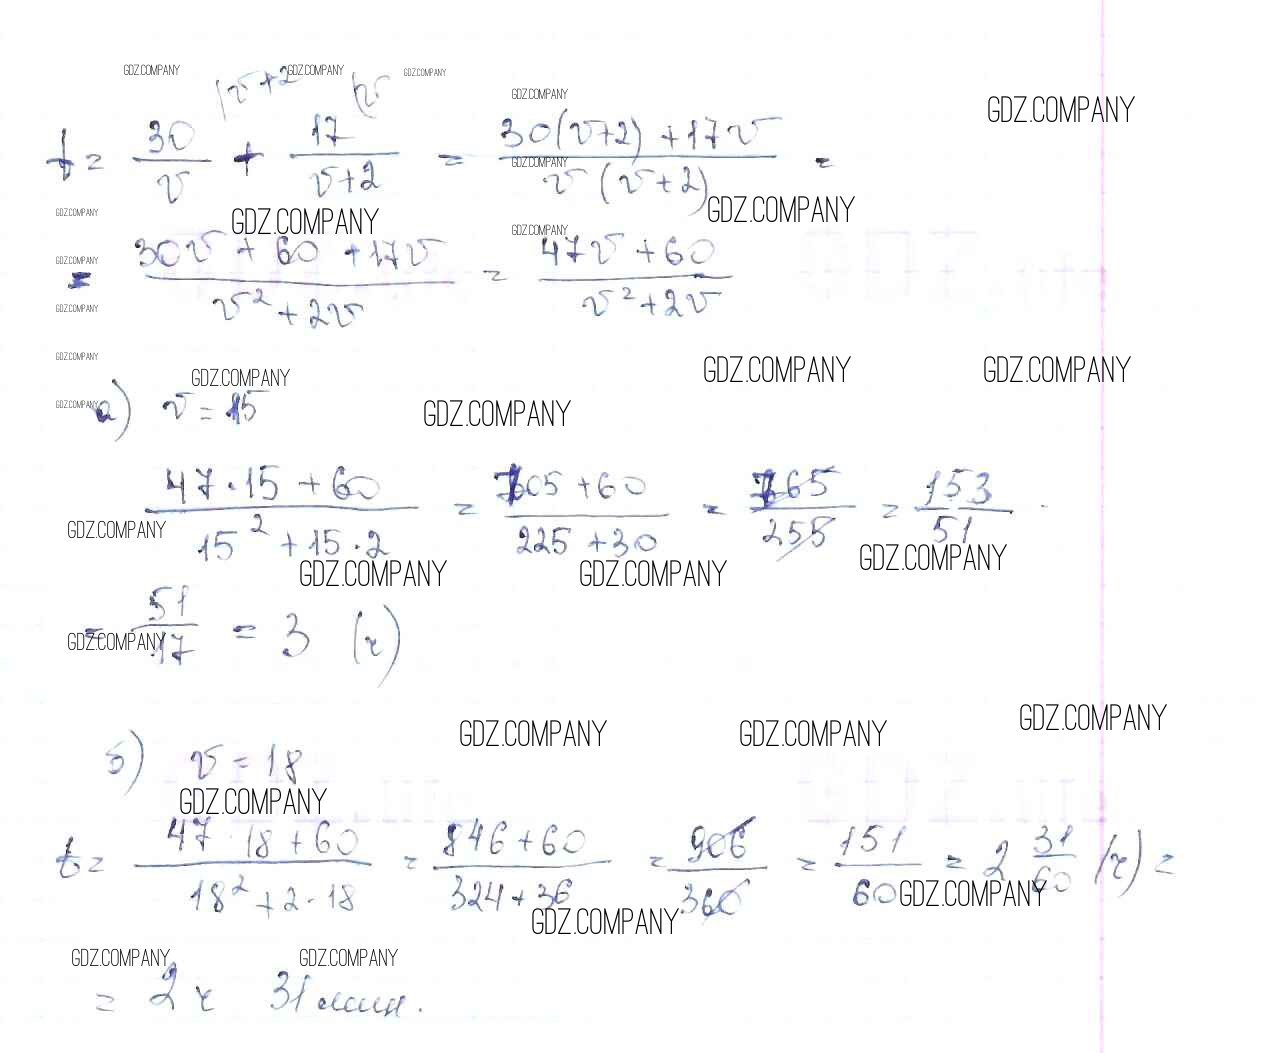 GDZ.COMPANY GDZ.COMPANY GDZ.COMPANY
|v+2 |v
GDZ.COMPANY GDZ.COMPANY
t = 30/v + 17/(v+2) = (30(v+2)+17v)/(v(v+2)) =
GDZ.COMPANY
GDZ.COMPANY GDZ.COMPANY GDZ.COMPANY
GDZ.COMPANY
= (30v+60+17v)/(v²+2v) = (47v+60)/(v²+2v)
GDZ.COMPANY
GDZ.COMPANY
GDZ.COMPANY GDZ.COMPANY GDZ.COMPANY
GDZ.COMPANY
GDZ.COMPANY GDZ.COMPANY
а) v = 15
(47·15+60)/(15²+15·2) = (705+60)/(225+30) = 765/255 = 153/51
GDZ.COMPANY GDZ.COMPANY GDZ.COMPANY GDZ.COMPANY
= 51/17 = 3 (ч)
GDZ.COMPANY
GDZ.COMPANY GDZ.COMPANY GDZ.COMPANY
б) v = 18
GDZ.COMPANY
t = (47·18+60)/(18²+2·18) = (846+60)/(324+36) = 906/360 = 151/60 = 2 31/60 (ч) =
GDZ.COMPANY GDZ.COMPANY
GDZ.COMPANY GDZ.COMPANY
= 2 ч 31 мин.